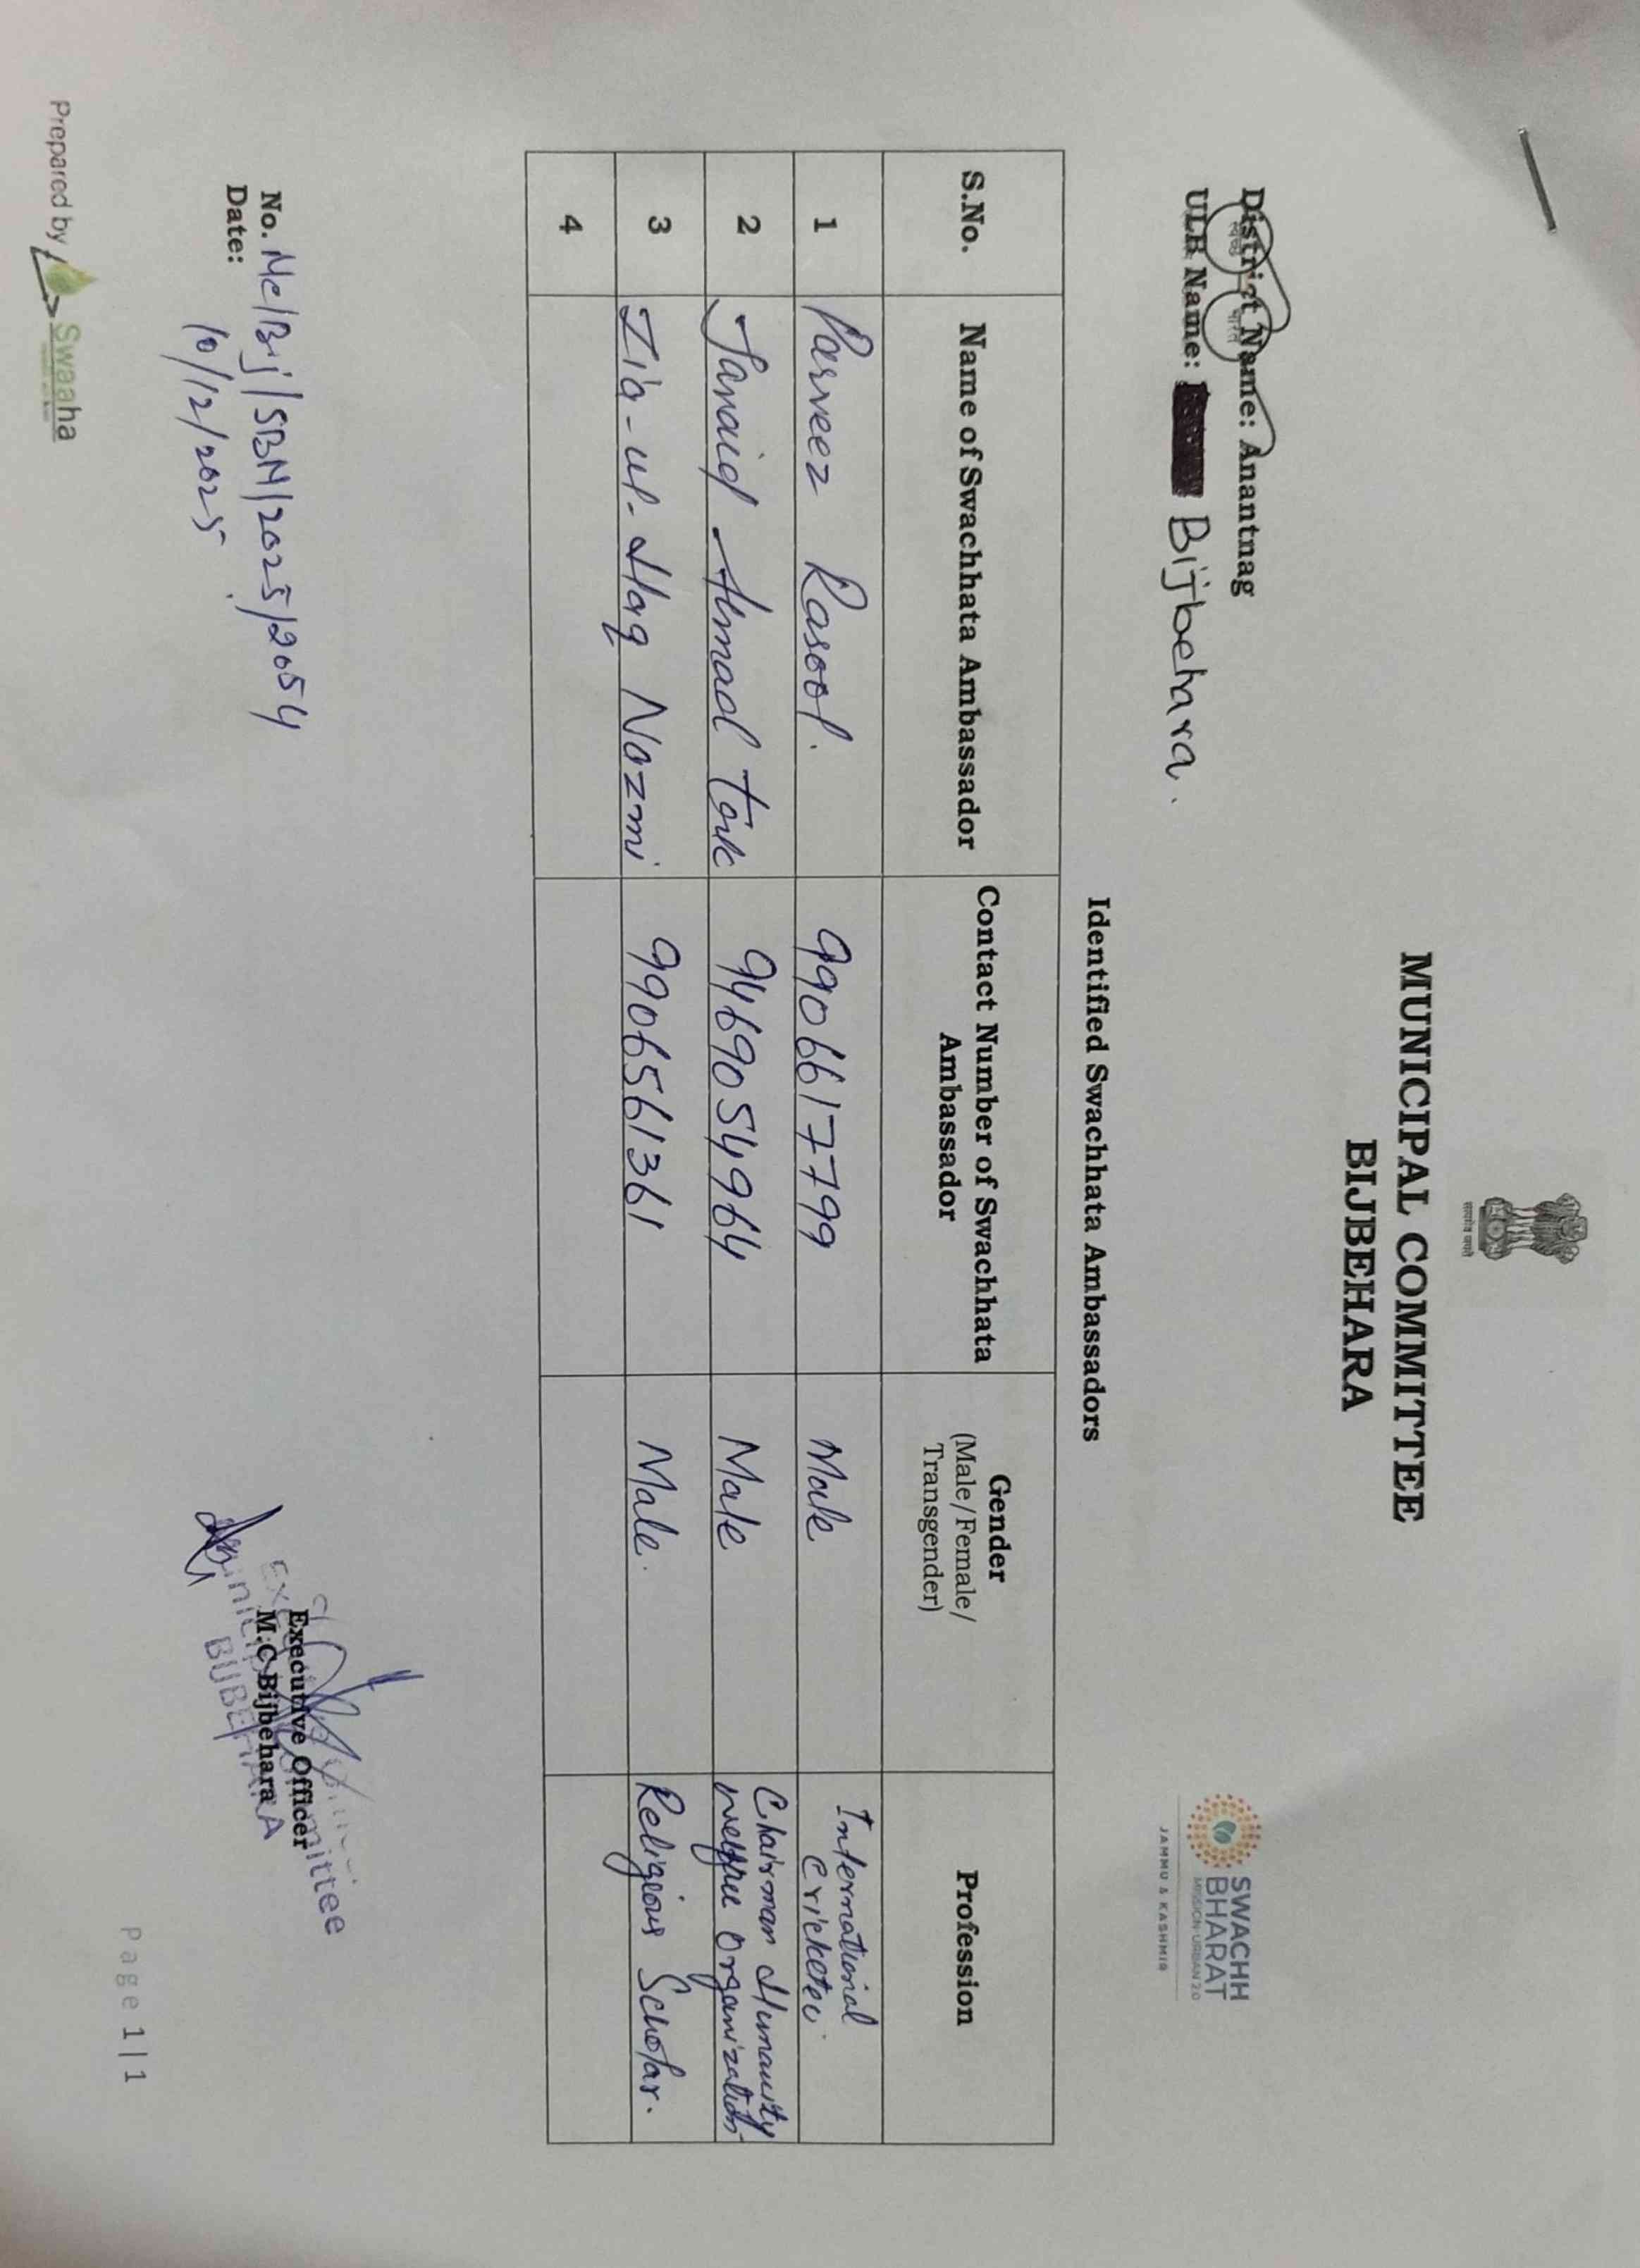 सत्यमेव जयते
MUNICIPAL COMMITTEE
BIJBEHARA
SWACHH
BHARAT
MISSION-URBAN 2.0
JAMMU & KASHMIR
स्वच्छ भारत
District Name: Anantnag
ULB Name: Bijbehara.
Identified Swachhata Ambassadors
S.No. Name of Swachhata Ambassador Contact Number of Swachhata Ambassador Gender (Male/Female/Transgender) Profession
1 Parveez Rasool. 9906617799 Male International Cricketer.
2 Javaid Ahmad Tak 9469054964 Male Chairman Humanity Welfare Organization
3 Zia-ul-Haq Nazmi 9906561361 Male. Religious Scholar.
4
No. Mc/Bij/SBM/2025/2054
Date: 10/12/2025
Executive Officer
M.C Bijbehara
BIJBEHARA
Prepared by Swaaha
Page 1|1